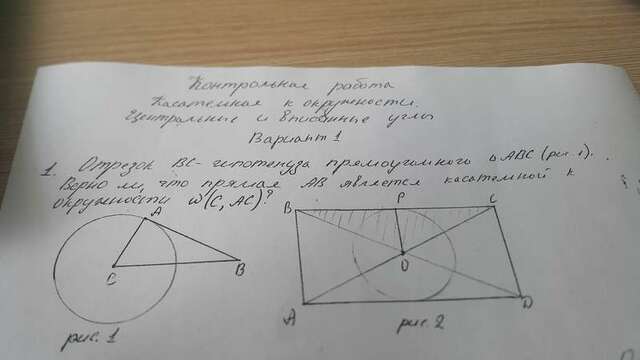 Контрольная работа
Касательная к окружности.
Центральные и вписанные углы
Вариант 1
1. Отрезок BC - гипотенуза прямоугольного △ABC (рис. 1).
Верно ли, что прямая AB является касательной к
окружности ω(C, AC)?
A
C
B
рис. 1
B
P
C
O
A
D
рис. 2